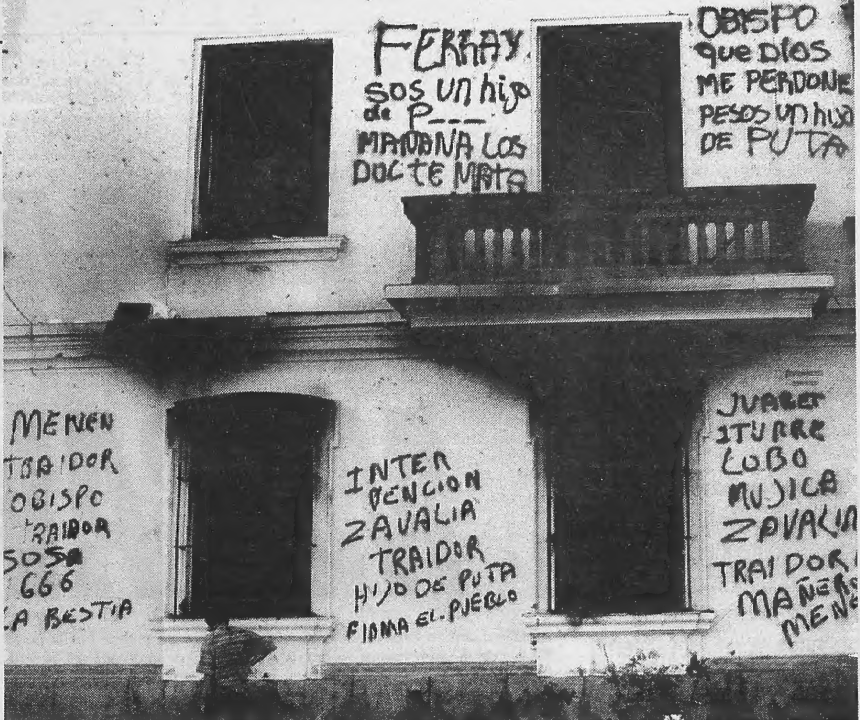 FERRAY
SOS UN hijo
de P---
MAÑANA LOS
DOC TE MATA
OBISPO
que DIOS
ME PERDONE
PESOS UN hijo
DE PUTA
MENEN
TRAIDOR
OBISPO
TRAIDOR
SOSA
666
LA BESTIA
INTER
VENCION
ZAVALIA
TRAIDOR
HIJO DE PUTA
FIRMA EL-PUEBLO
JUAREZ
ITURRE
LOBO
MUJICA
ZAVALIA
TRAIDOR
MAÑERO
MENE